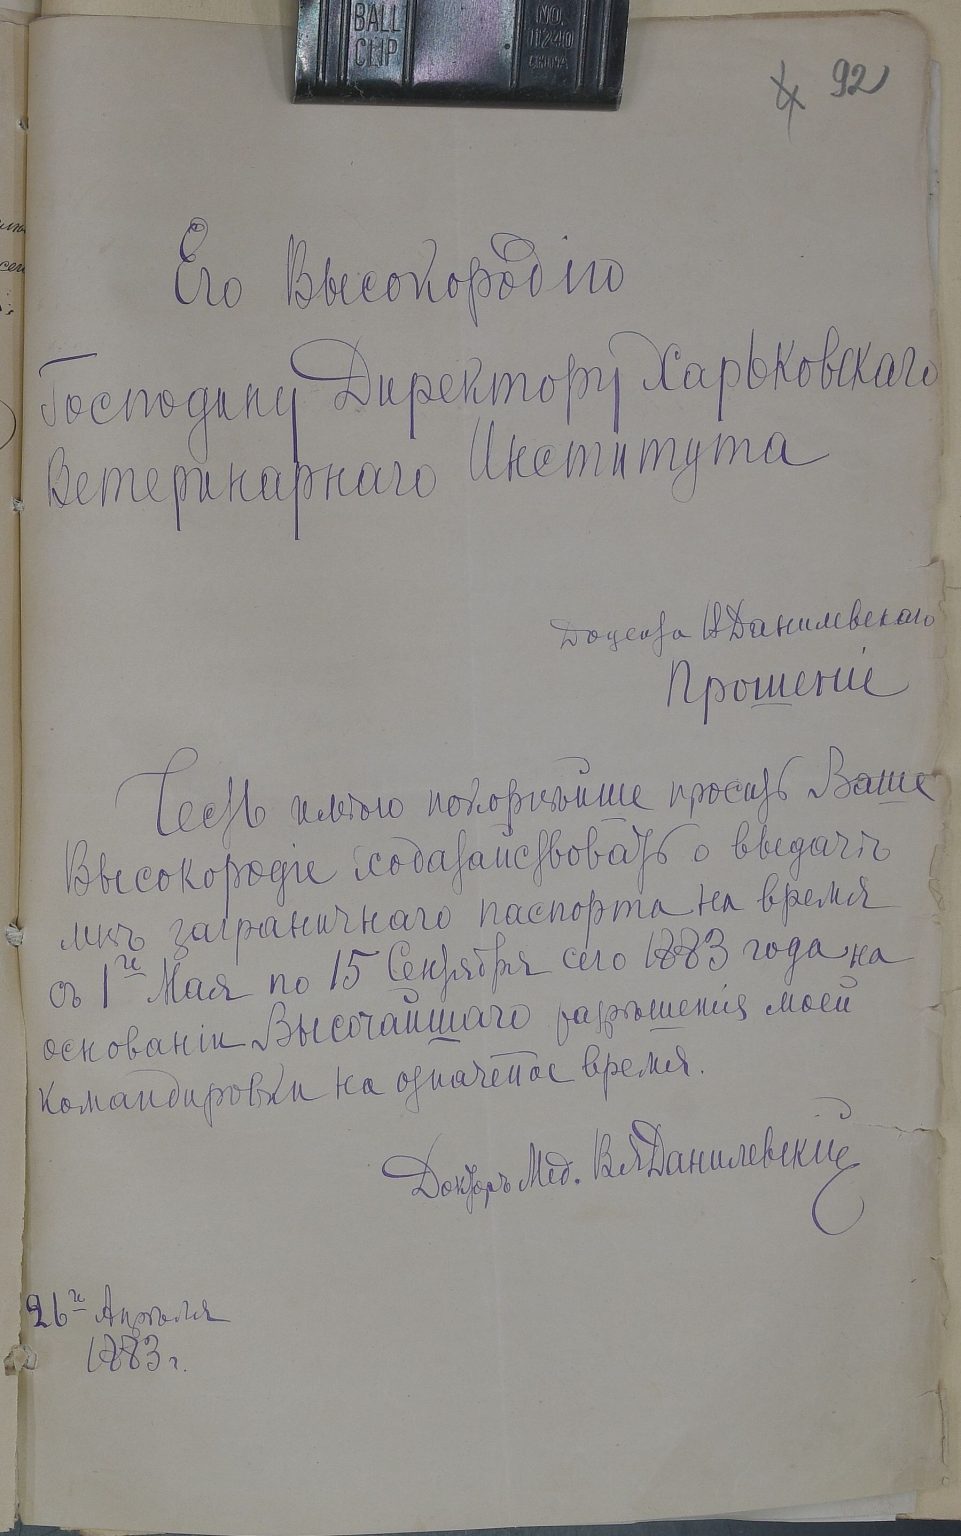 BALL
CLIP
NO.
11240
92
Его Высокородію
Господину Директору Харьковскаго
Ветеринарнаго Института
Доцента В Данилевскаго
Прошеніе
Честь имѣю покорнѣйше просить Ваше
Высокородіе ходатайствовать о выдачѣ
мнѣ заграничнаго паспорта на время
съ 1го Мая по 15 Сентября сего 1883 года на
основаніи Высочайшаго разрѣшенія моей
командировки на означеное время.
Докторъ Мед. В Я Данилевскій
26го Апрѣля
1883 г.